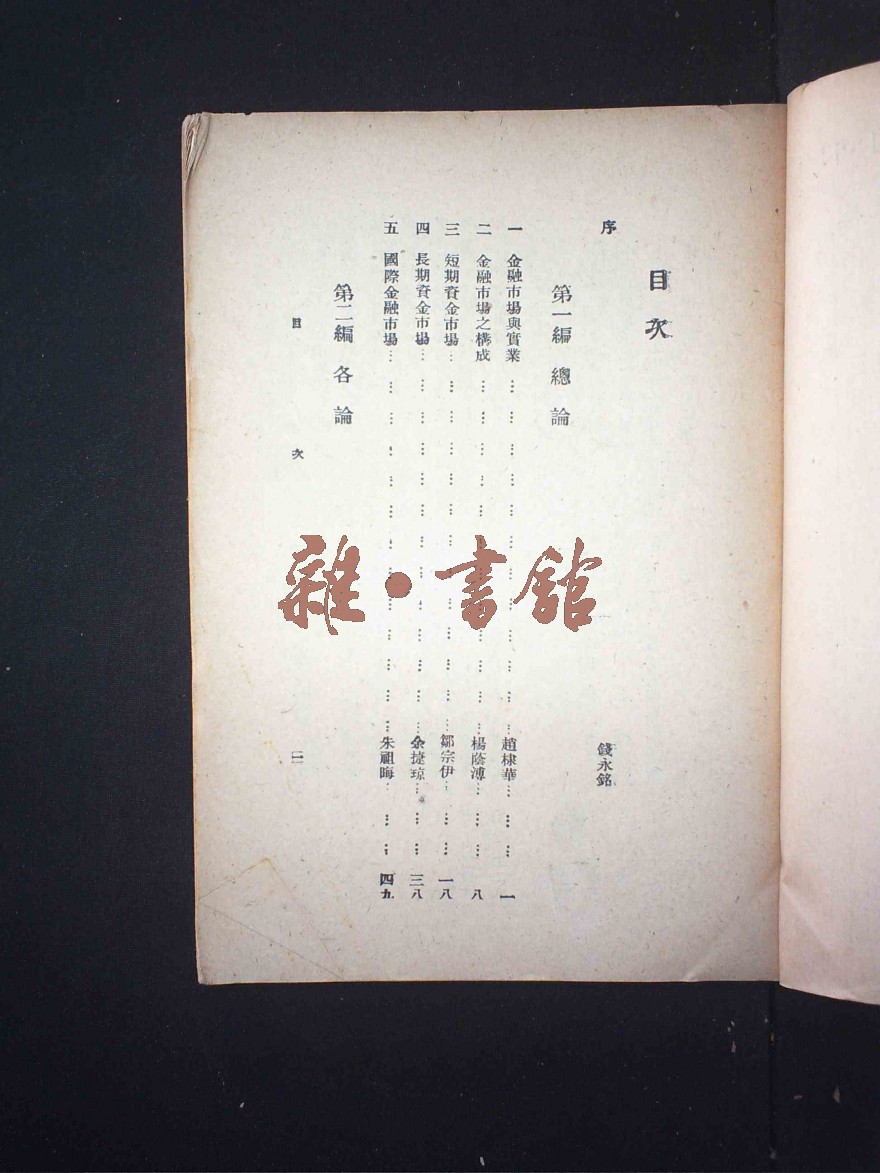 目次
序 錢永銘
第一編 總論
一 金融市場與實業 趙棣華 一
二 金融市場之構成 楊蔭溥 八
三 短期資金市場 鄒宗伊 一八
四 長期資金市場 余捷瓊 三八
五 國際金融市場 朱祖晦 四九
第二編 各論
目 次
雜·書館